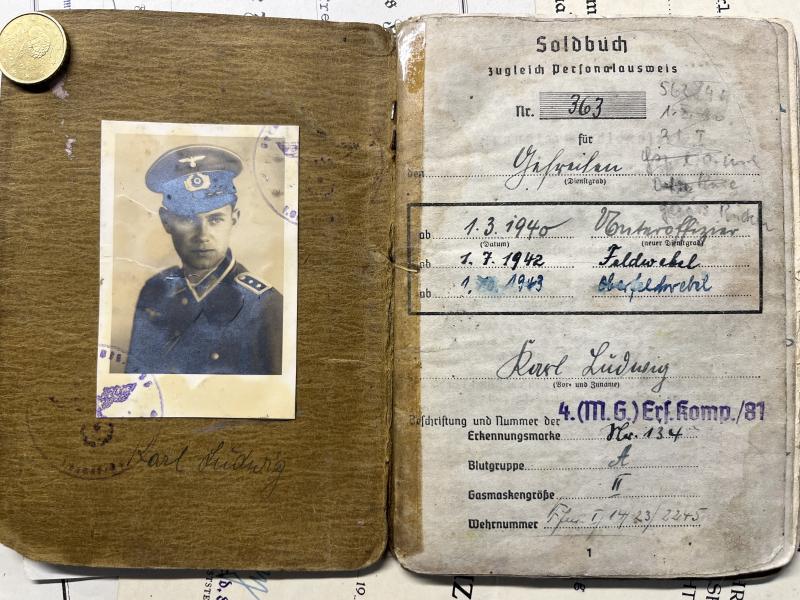 Karl Ludwig
Soldbuch
zugleich Personalausweis
Nr. 363
für
den Gefreiten
(Dienstgrad)
ab 1.3.1940 Unteroffizier
(Datum) (neuer Dienstgrad)
ab 1.7.1942 Feldwebel
ab 1. 1943 Oberfeldwebel
Karl Ludwig
(Vor- und Zuname)
Beschriftung und Nummer der 4.(M.G.) Ers. Komp./81
Erkennungsmarke Nr. 134
Blutgruppe A
Gasmaskengröße II
Wehrnummer
1